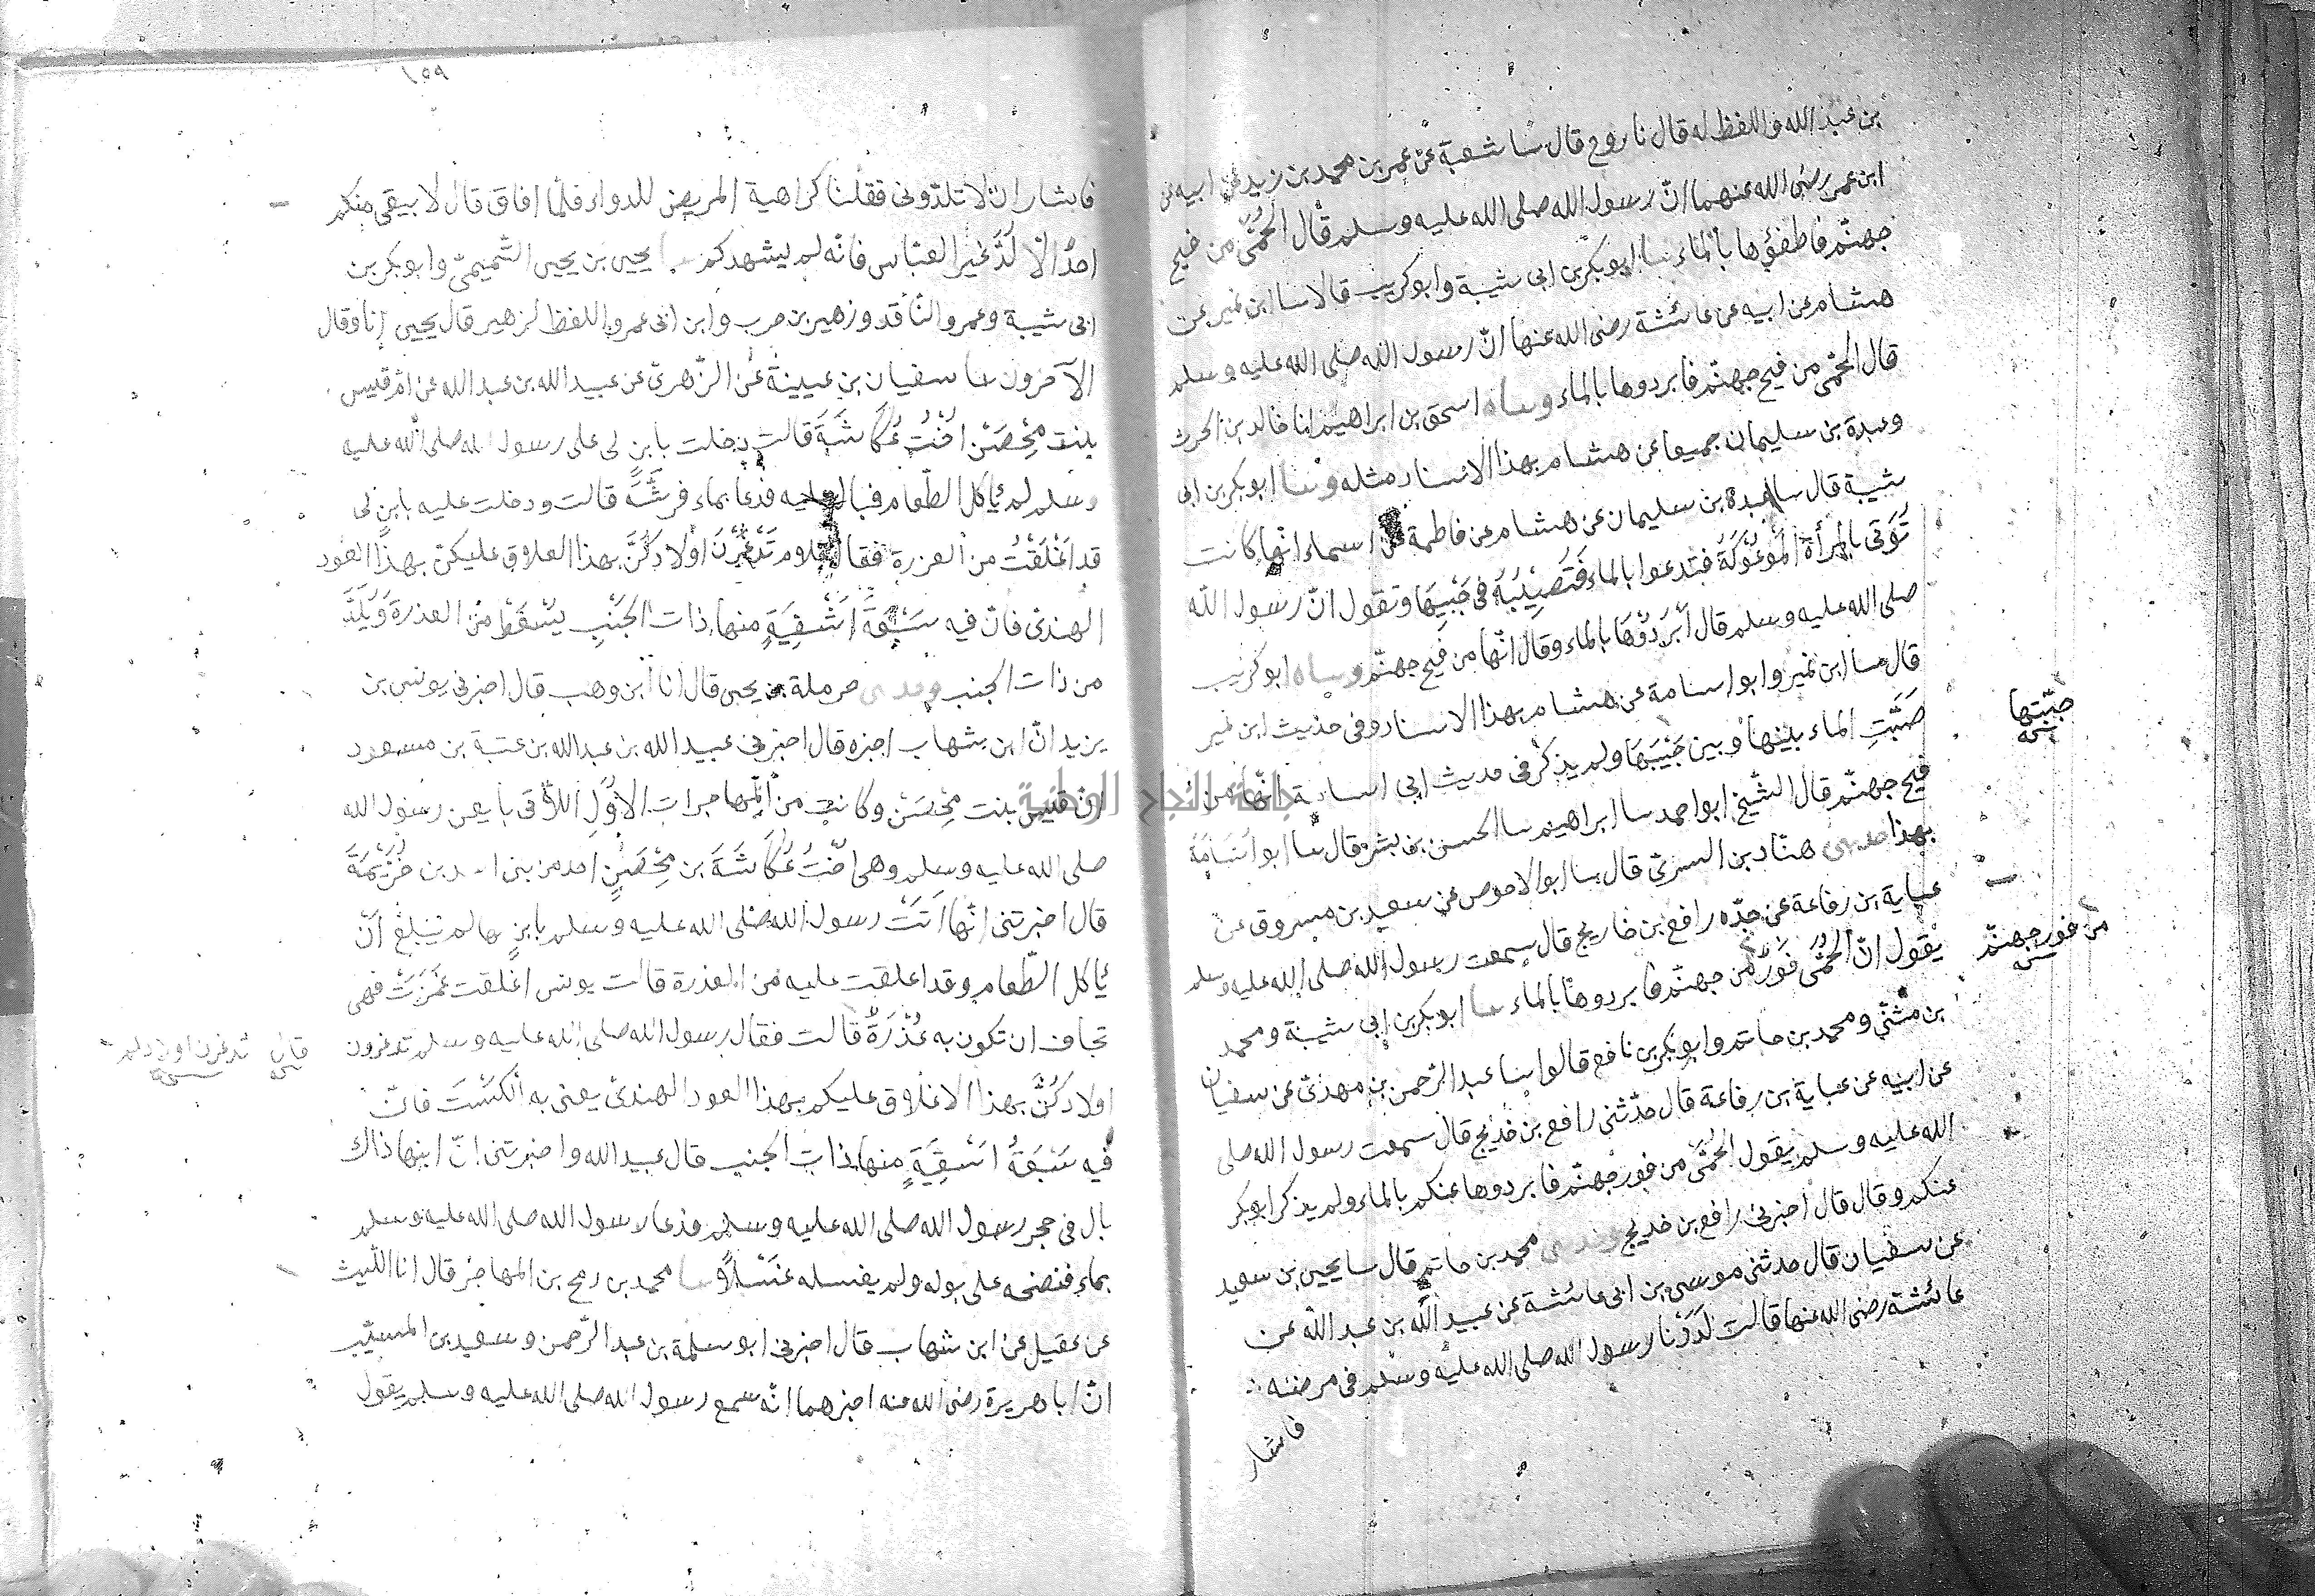 بن عبد الله واللفظ له قال نا روح قال سا شعبة عن عمر بن محمد بن زيد عن ابيه عن
ابن عمر رضى الله عنهما انّ رسول الله صلى الله عليه وسلم قال الحُمّى من فيح
جهنّم فاطفؤها بالماء سا ابو بكر بن ابى شيبة وابو كريب قالا سا ابن نمير عن
هشام عن ابيه عن عائشة رضى الله عنها انّ رسول الله صلى الله عليه وسلم
قال الحمّى من فيح جهنّم فابردوها بالماء وساه اسحق بن ابراهيم انا خالد بن الحرث
وعبدة بن سليمان جميعا عن هشام بهذا الاسناد مثله وسا ابو بكر بن ابى
شيبة قال سا عبدة بن سليمان عن هشام عن فاطمة عن اسماء انّها كانت
تُوَتى بالمرأة المَوْعُوكَةُ فتدعوا بالماء فَتَصُبُّهُ فى جَيْبِهَا وتقول انّ رسول الله
صلى الله عليه وسلم قال أَبْرِدُوْهَا بالماء وقال انّها من فيح جهنّم وساه ابو كريب
قال سا ابن نمير وابو اسامة عن هشام بهذا الاسناد وفى حديث ابن نمير
صَبَّتِ الماء بينها وبين جَيْبِهَا ولم يذكر فى حديث ابى اسامة انّها من
فيح جهنّم قال الشّيخ ابو احمد سا ابراهيم سا الحسن بن بشر قال سا ابو اُسَامَةَ
بهذا حدثنى هنّاد بن السرىّ قال سا ابو الاحوص عن سعيد بن مسروق عن
عباية ابن رفاعة عن جدّه رافع بن خديج قال سمعت رسول الله صلى الله عليه وسلم
يقول انّ الحُمّى فَوْرٌ من جهنّم فابردوها بالماء سا ابو بكر بن ابى شيبة ومحمد
بن مثنّى ومحمد بن حاتم وابو بكر بن نافع قالوا سا عبد الرّحمن بن مهدىّ عن سفيان
عن ابيه عن عباية بن رفاعة قال حدّثنى رافع بن خديج قال سمعت رسول الله صلى
الله عليه وسلم يقول الحُمّى من فور جهنّم فابردوها عنكم بالماء ولم يذكر ابو بكر
عنكم وقال قال اخبرنى رافع بن خديج وحدثنى محمد بن حاتم قال سا يحيى بن سعيد
عن سفيان قال حدثنى موسى بن ابى عائشة عن عبيد الله بن عبد الله عن
عائشة رضى الله عنها قالت لَدَدْنا رسول الله صلى الله عليه وسلم فى مرضه
فاشار
جبّتها
من فور جهنّم
١٥٩
فاشار ان لا تلدّونى فقلنا كراهية المريض للدواء فلمّا افاق قال لا يبقى منكم
احدٌ الّا لُدَّ غير العبّاس فانّه لم يشهدكم سا يحيى بن يحيى التّميمىّ وابو بكر بن
ابى شيبة وعمرو النّاقد وزهير بن حرب وابن ابى عمر واللفظ لزهير قال يحيى انا وقال
الآخرون سا سفيان بن عيينة عن الزّهرىّ عن عبيد الله بن عبد الله عن امّ قيس
بنت مِحْصَنٍ اخْتُ عُكَّاشَةَ قالت دخلت بابنٍ لى على رسول الله صلى الله عليه
وسلم لم ياكل الطّعام فبال عليه فدعا بماء فرشَّهُ قالت ودخلت عليه بابنٍ لى
قد اَعْلَقْتُ من العزرة فقال علام تَدْغَرْنَ اولادكُنَّ بهذا العلاق عليكنّ بهذا العود
الهندىّ فانّ فيه سَبْعَةَ اَشْفِيَةٍ منها ذات الجَنْبِ يُسْعَطُ من العذرة وَيُلَدُّ
من ذات الجنب وحدثنى حرملة بن يحيى قال انا ابن وهب قال اخبرنى يونس بن
يزيد انّ ابن شهاب اخبره قال اخبرنى عبيد الله بن عبد الله بن عتبة بن مسعود
انّ قيس بنت مِحْصَنٍ وكانت من المهاجرات الاُوَلِ اللاّتى بايعن رسول الله
صلى الله عليه وسلم وهى اختُ عُكَّاشَةَ بن مِحْصَنٍ احد من بنى اسد بن خُزَيْمَةَ
قال اخبرتنى انّها اَتَتْ رسول الله صلى الله عليه وسلم بابنٍ لها لم يَبْلُغْ اَنْ
ياكل الطّعام وقد اعلقت عليه من العذرة قالت يونس اعلقت غَمَزَتْ فهى
تخاف ان تكون به عُذْرَةٌ قالت فقال رسول الله صلى الله عليه وسلم تدغرون
اولادكُنَّ بهذا الاعلاق عليكم بهذا العود الهندىّ يعنى به الكُسْتَ فانّ
فيه سَبْعَةُ اَشْفِيَةٍ منها ذات الجنب قال عبيد الله واخبرتنى انّ ابنها ذاك
بال فى حجر رسول الله صلى الله عليه وسلم فدعا رسول الله صلى الله عليه وسلم
بماء فنضحه على بوله ولم يغسله غَسْلًا وسا محمد بن رمح بن المهاجر قال انا اللّيث
عن عقيل عن ابن شهاب قال اخبرنى ابو سلمة بن عبد الرّحمن وسعيد بن المسيّب
انّ ابا هريرة رضى الله عنه اخبرهما انّه سمع رسول الله صلى الله عليه وسلم يقول
جامعة النجاح الوطنية